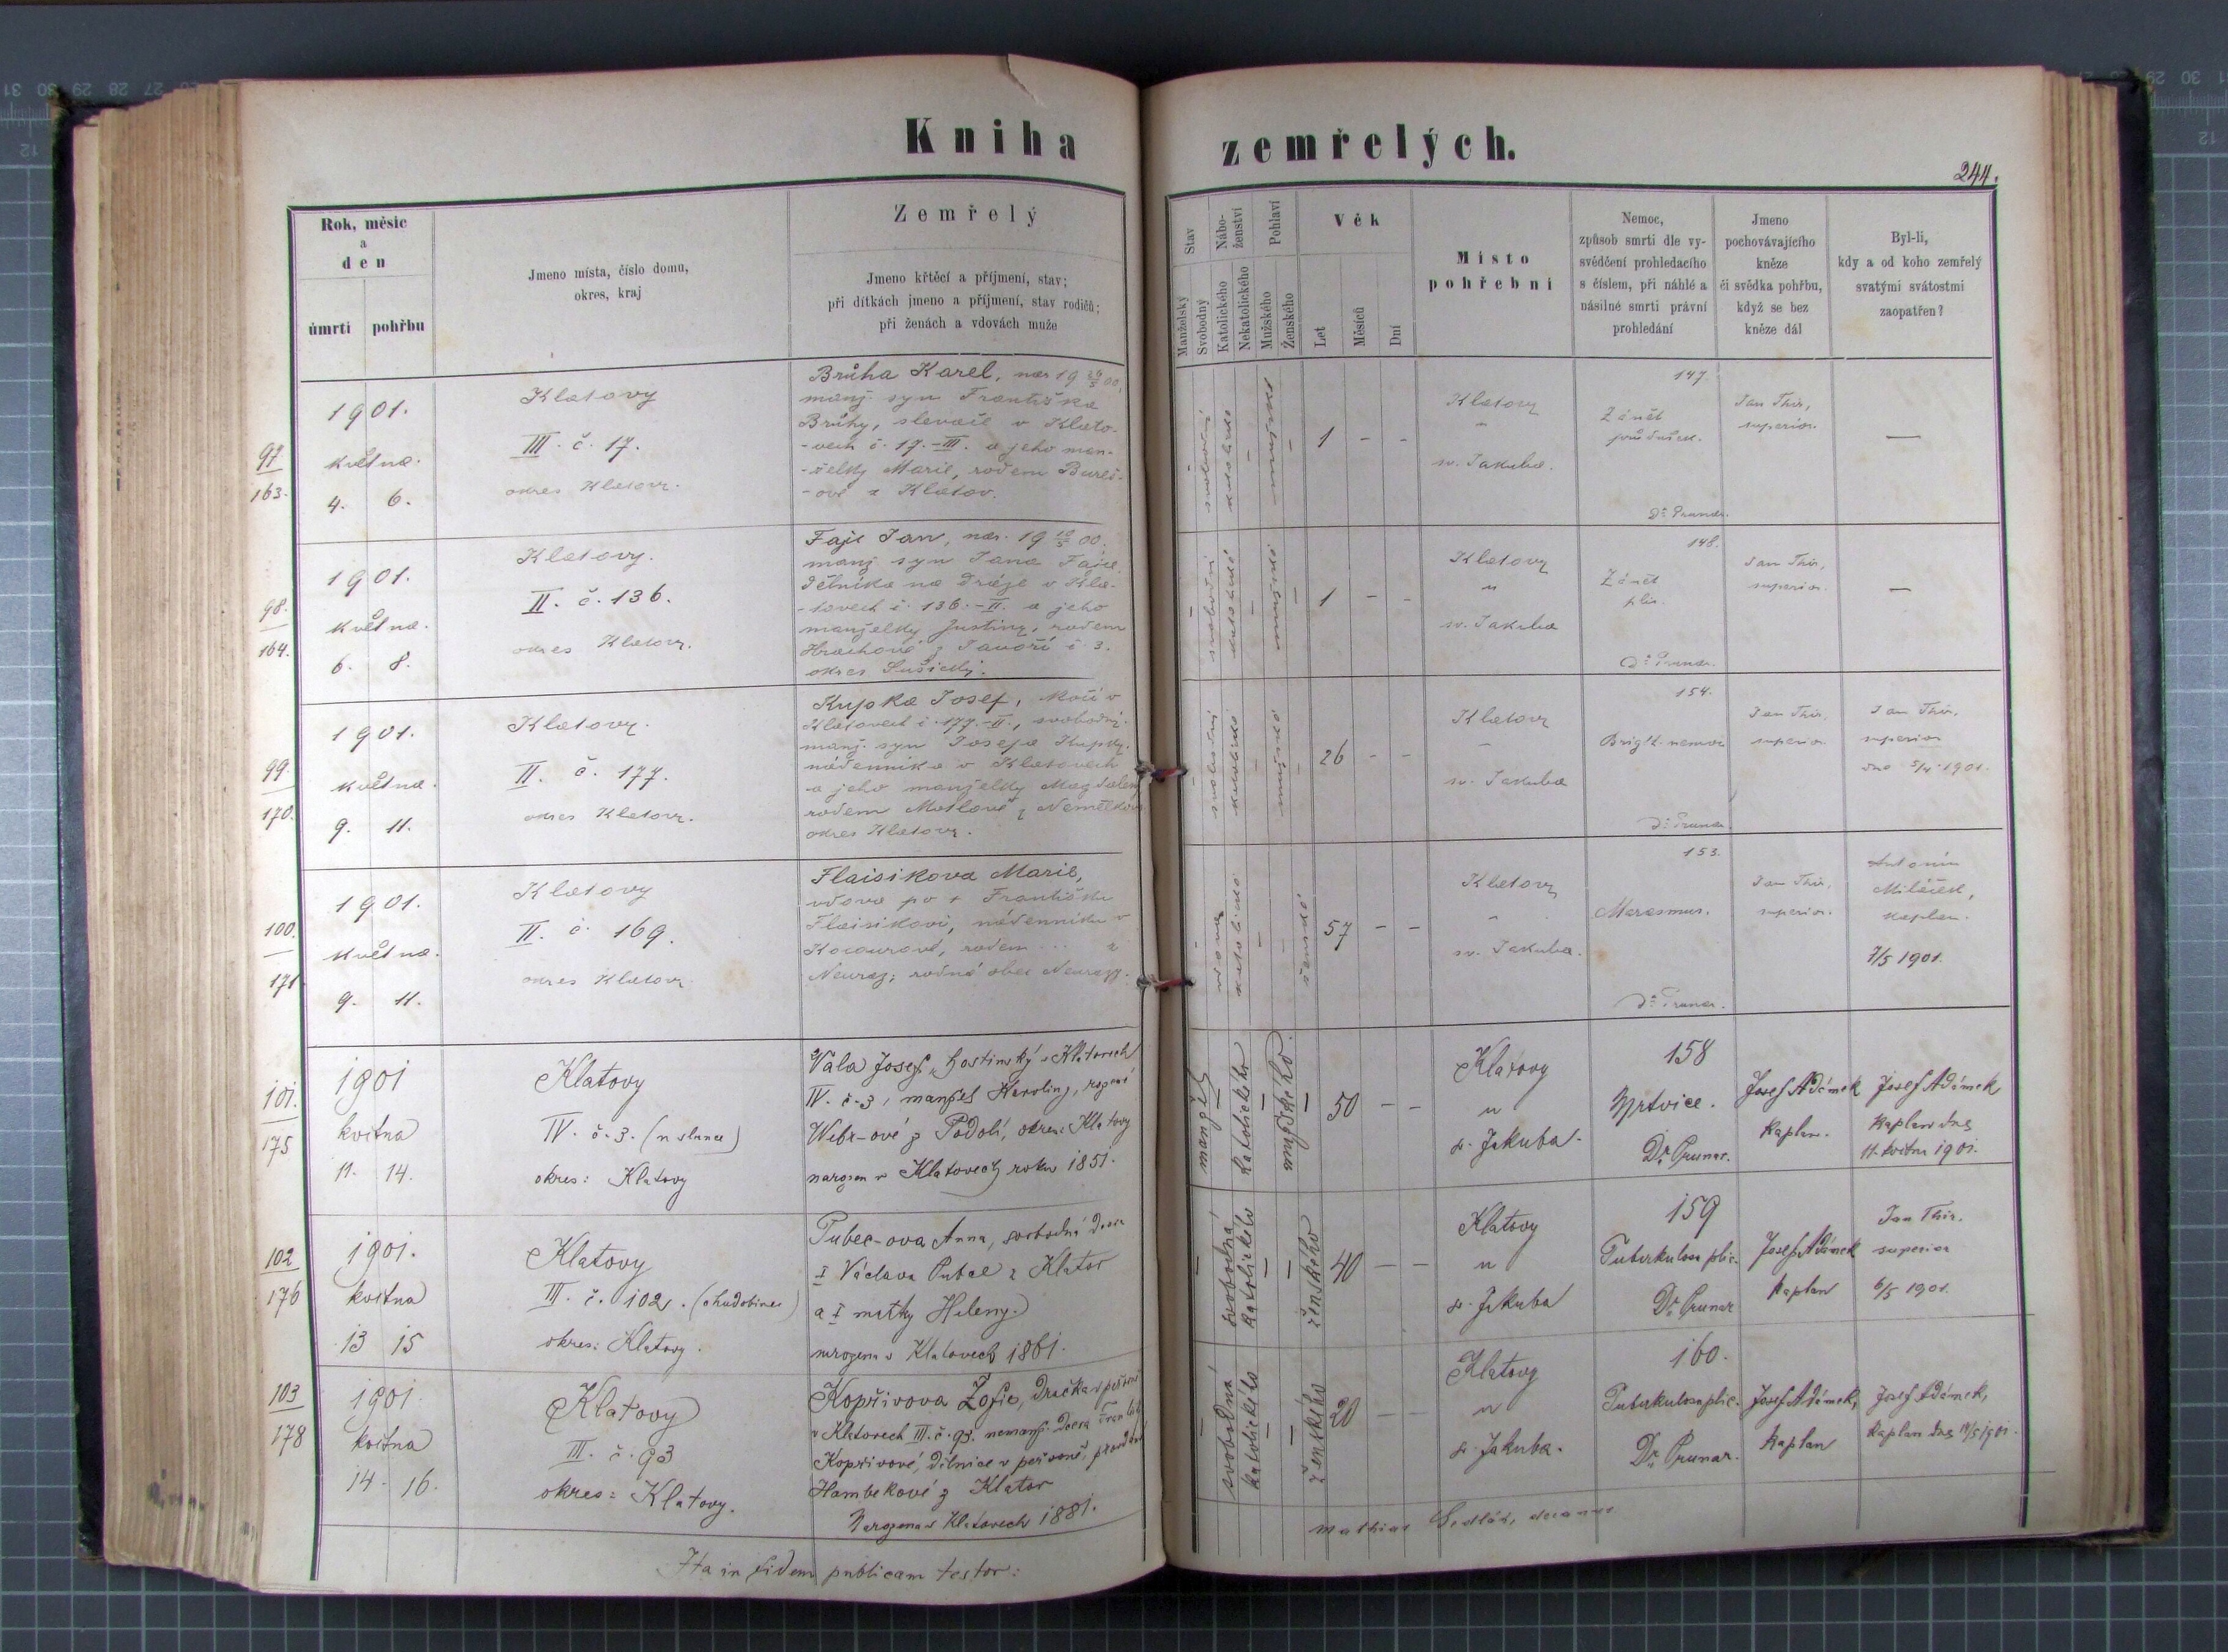 Kniha zemřelých.
244.
Rok, měsíc
a
den
úmrtí pohřbu
Jmeno místa, číslo domu,
okres, kraj
Zemřelý
Jmeno křtěcí a příjmení, stav;
při dítkách jmeno a příjmení, stav rodičů;
při ženách a vdovách muže
Stav
Manželský
Svobodný
Nábo-
ženství
Katolického
Nekatolického
Pohlaví
Mužského
Ženského
Věk
Let
Měsíců
Dní
Místo
pohřební
Nemoc,
způsob smrti dle vy-
svědčení prohledacího
s číslem, při náhlé a
násilné smrti právní
prohledání
Jmeno
pochovávajícího
kněze
či svědka pohřbu,
když se bez
kněze dál
Byl-li,
kdy a od koho zemřelý
svatými svátostmi
zaopatřen?
97
163.
1901.
května.
4. 6.
Klatovy
III. č. 17.
okres Klatovy.
Brůha Karel, nar 19 29/5 00,
manj. syn Františka
Brůhy, slevače v Klato-
-vech č. 17.-III. a jeho man-
-želky Marie, rodem Bureš-
-ové z Klatov.
svobodný
katolické
mužské
1 - -
Klatovy
"
sv. Jakuba.
147.
Zánět
průdušek.
Dr. Prunar.
Jan Thir,
superior.
—
98.
164.
1901.
května.
6. 8.
Klatovy.
II. č. 136.
okres Klatovy.
Fajt Jan, nar. 19 /5 00.
manj. syn Jana Fajta,
dělníka na dráze v Kla-
-tovech č. 136.-II. a jeho
manželky Justiny, rodem
Hrachové z Javoří č 3.
okres Sušický.
svobodný
katolické
mužské
1 - -
Klatovy
"
sv. Jakuba
148.
Zánět
plic.
Dr. Prunar.
Jan Thir,
superior.
—
99.
170.
1901.
května.
9. 11.
Klatovy.
II. č. 177.
okres Klatovy.
Kupka Josef, kočí v
Klatovech č. 177.-II., svobodný.
manj. syn Josefa Kupky,
nádenníka v Klatovech
a jeho manželky Magdaleny
rodem Motlové z
okres Klatovy.
svobodný
katolické
mužské
26 - -
Klatovy
"
sv. Jakuba
154.
Bright. nemoc
Dr. Prunar.
Jan Thir,
superior.
Jan Thir,
superior
dne 5/4 1901.
100.
171
1901.
května.
9. 11.
Klatovy
II. č. 169.
okres Klatovy
Flaisikova Marie,
vdova po † Františku
Flaisikovi, nádenníku v
rodem ... z
Neuraz; rodná obec Neurazy.
vdova
katolické
ženské
57 - -
Klatovy
"
sv. Jakuba.
153.
Marasmus.
Dr. Prunar.
Jan Thir,
superior.
Antonín
Miláček,
kaplan.
7/5 1901.
101.
175
1901
května
11. 14.
Klatovy
IV. č. 3. (u slunce)
okres: Klatovy
Vala Josef, hostinský v Klatovech
IV. č. 3, manžel Karoliny, rozené
Webr-ové z Podolí, okres: Klatovy
narozen v Klatovech roku 1851.
manžel
katolického
mužského.
50 - -
Klatovy
u
s. Jakuba.
158
Mrtvice.
Dr. Prunar.
Josef Adámek
kaplan.
Josef Adámek,
kaplan dne
11. května 1901.
102
176
1901.
května
13 15
Klatovy
III. č. 102. (chudobinec)
okres: Klatovy.
-ova Anna, svobodná dcera
† Václava z Klatov
a † matky Heleny.
narozena v Klatovech 1861.
svobodná
katolického
ženského
40 - -
Klatovy
u
s. Jakuba
159
Tuberkulosa plic.
Dr. Prunar
Josef Adámek
kaplan
Jan Thir.
superior
6/5 1901.
103
178
1901
května
14. 16.
Klatovy
III. č. 93
okres: Klatovy.
Kopřivova Žofie, dračka v peřárně
v Klatovech III. č. 93. nemanž. dcera Františky
Kopřivové, dělnice v peřárně,
Hambekové z Klatov
Narozena v Klatovech 1881.
svobodná
katolického
ženského
20 - -
Klatovy
u
s. Jakuba.
160.
Tuberkulosa plic.
Dr. Prunar.
Josef Adámek,
kaplan
Josef Adámek,
kaplan dne 14/5 1901.
Ita in fidem publicam testor:
Mathias Sedlák, decanus